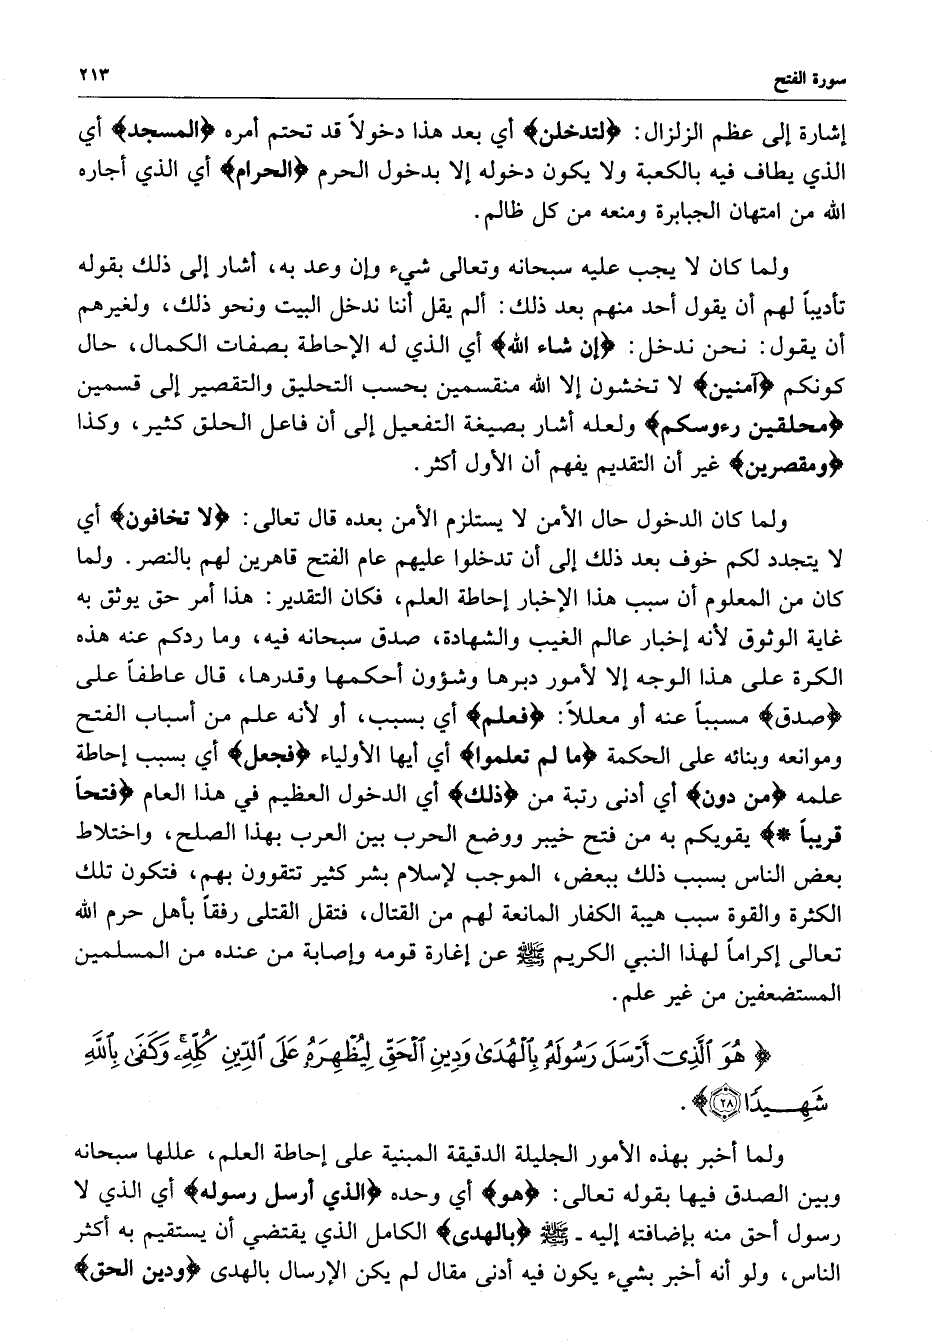 سورة الفتح ٢١٣
إشارة إلى عظم الزلزال: ﴿لتدخلن﴾ أي بعد هذا دخولاً قد تحتم أمره ﴿المسجد﴾ أي
الذي يطاف فيه بالكعبة ولا يكون دخوله إلا بدخول الحرم ﴿الحرام﴾ أي الذي أجاره
الله من امتهان الجبابرة ومنعه من كل ظالم.
ولما كان لا يجب عليه سبحانه وتعالى شيء وإن وعد به، أشار إلى ذلك بقوله
تأديباً لهم أن يقول أحد منهم بعد ذلك: ألم يقل أننا ندخل البيت ونحو ذلك، ولغيرهم
أن يقول: نحن ندخل: ﴿إن شاء الله﴾ أي الذي له الإحاطة بصفات الكمال، حال
كونكم ﴿آمنين﴾ لا تخشون إلا الله منقسمين بحسب التحليق والتقصير إلى قسمين
﴿محلقين رءوسكم﴾ ولعله أشار بصيغة التفعيل إلى أن فاعل الحلق كثير، وكذا
﴿ومقصرين﴾ غير أن التقديم يفهم أن الأول أكثر.
ولما كان الدخول حال الأمن لا يستلزم الأمن بعده قال تعالى: ﴿لا تخافون﴾ أي
لا يتجدد لكم خوف بعد ذلك إلى أن تدخلوا عليهم عام الفتح قاهرين لهم بالنصر. ولما
كان من المعلوم أن سبب هذا الإخبار إحاطة العلم، فكان التقدير: هذا أمر حق يوثق به
غاية الوثوق لأنه إخبار عالم الغيب والشهادة، صدق سبحانه فيه، وما ردكم عنه هذه
الكرة على هذا الوجه إلا لأمور دبرها وشؤون أحكمها وقدرها، قال عاطفاً على
﴿صدق﴾ مسبباً عنه أو معللاً: ﴿فعلم﴾ أي بسبب، أو لأنه علم من أسباب الفتح
وموانعه وبنائه على الحكمة ﴿ما لم تعلموا﴾ أي أيها الأولياء ﴿فجعل﴾ أي بسبب إحاطة
علمه ﴿من دون﴾ أي أدنى رتبة من ﴿ذلك﴾ أي الدخول العظيم في هذا العام ﴿فتحاً
قريباً *﴾ يقويكم به من فتح خيبر ووضع الحرب بين العرب بهذا الصلح، واختلاط
بعض الناس بسبب ذلك ببعض، الموجب لإسلام بشر كثير تتقوون بهم، فتكون تلك
الكثرة والقوة سبب هيبة الكفار المانعة لهم من القتال، فتقل القتلى رفقاً بأهل حرم الله
تعالى إكراماً لهذا النبي الكريم ﷺ عن إغارة قومه وإصابة من عنده من المسلمين
المستضعفين من غير علم.
﴿ هُوَ ٱلَّذِىٓ أَرْسَلَ رَسُولَهُۥ بِٱلْهُدَىٰ وَدِينِ ٱلْحَقِّ لِيُظْهِرَهُۥ عَلَى ٱلدِّينِ كُلِّهِۦۚ وَكَفَىٰ بِٱللَّهِ
شَهِيدًا ٢٨﴾.
ولما أخبر بهذه الأمور الجليلة الدقيقة المبنية على إحاطة العلم، عللها سبحانه
وبين الصدق فيها بقوله تعالى: ﴿هو﴾ أي وحده ﴿الذي أرسل رسوله﴾ أي الذي لا
رسول أحق منه بإضافته إليه - ﷺ ﴿بالهدى﴾ الكامل الذي يقتضي أن يستقيم به أكثر
الناس، ولو أنه أخبر بشيء يكون فيه أدنى مقال لم يكن الإرسال بالهدى ﴿ودين الحق﴾